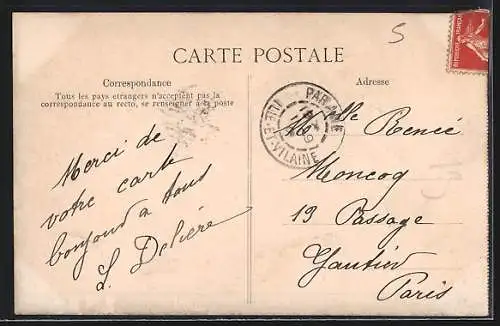 5
CARTE POSTALE
Correspondance
Tous les pays etrangers n'acceptent pas la
correspondance au recto, se renseigner à la poste
Merci de
votre carte
bonjour à tous
S. Delière
Adresse
ILLE-ET-VILAINE
Melle Renée
Moncoq
19 Passage
Gautier
Paris